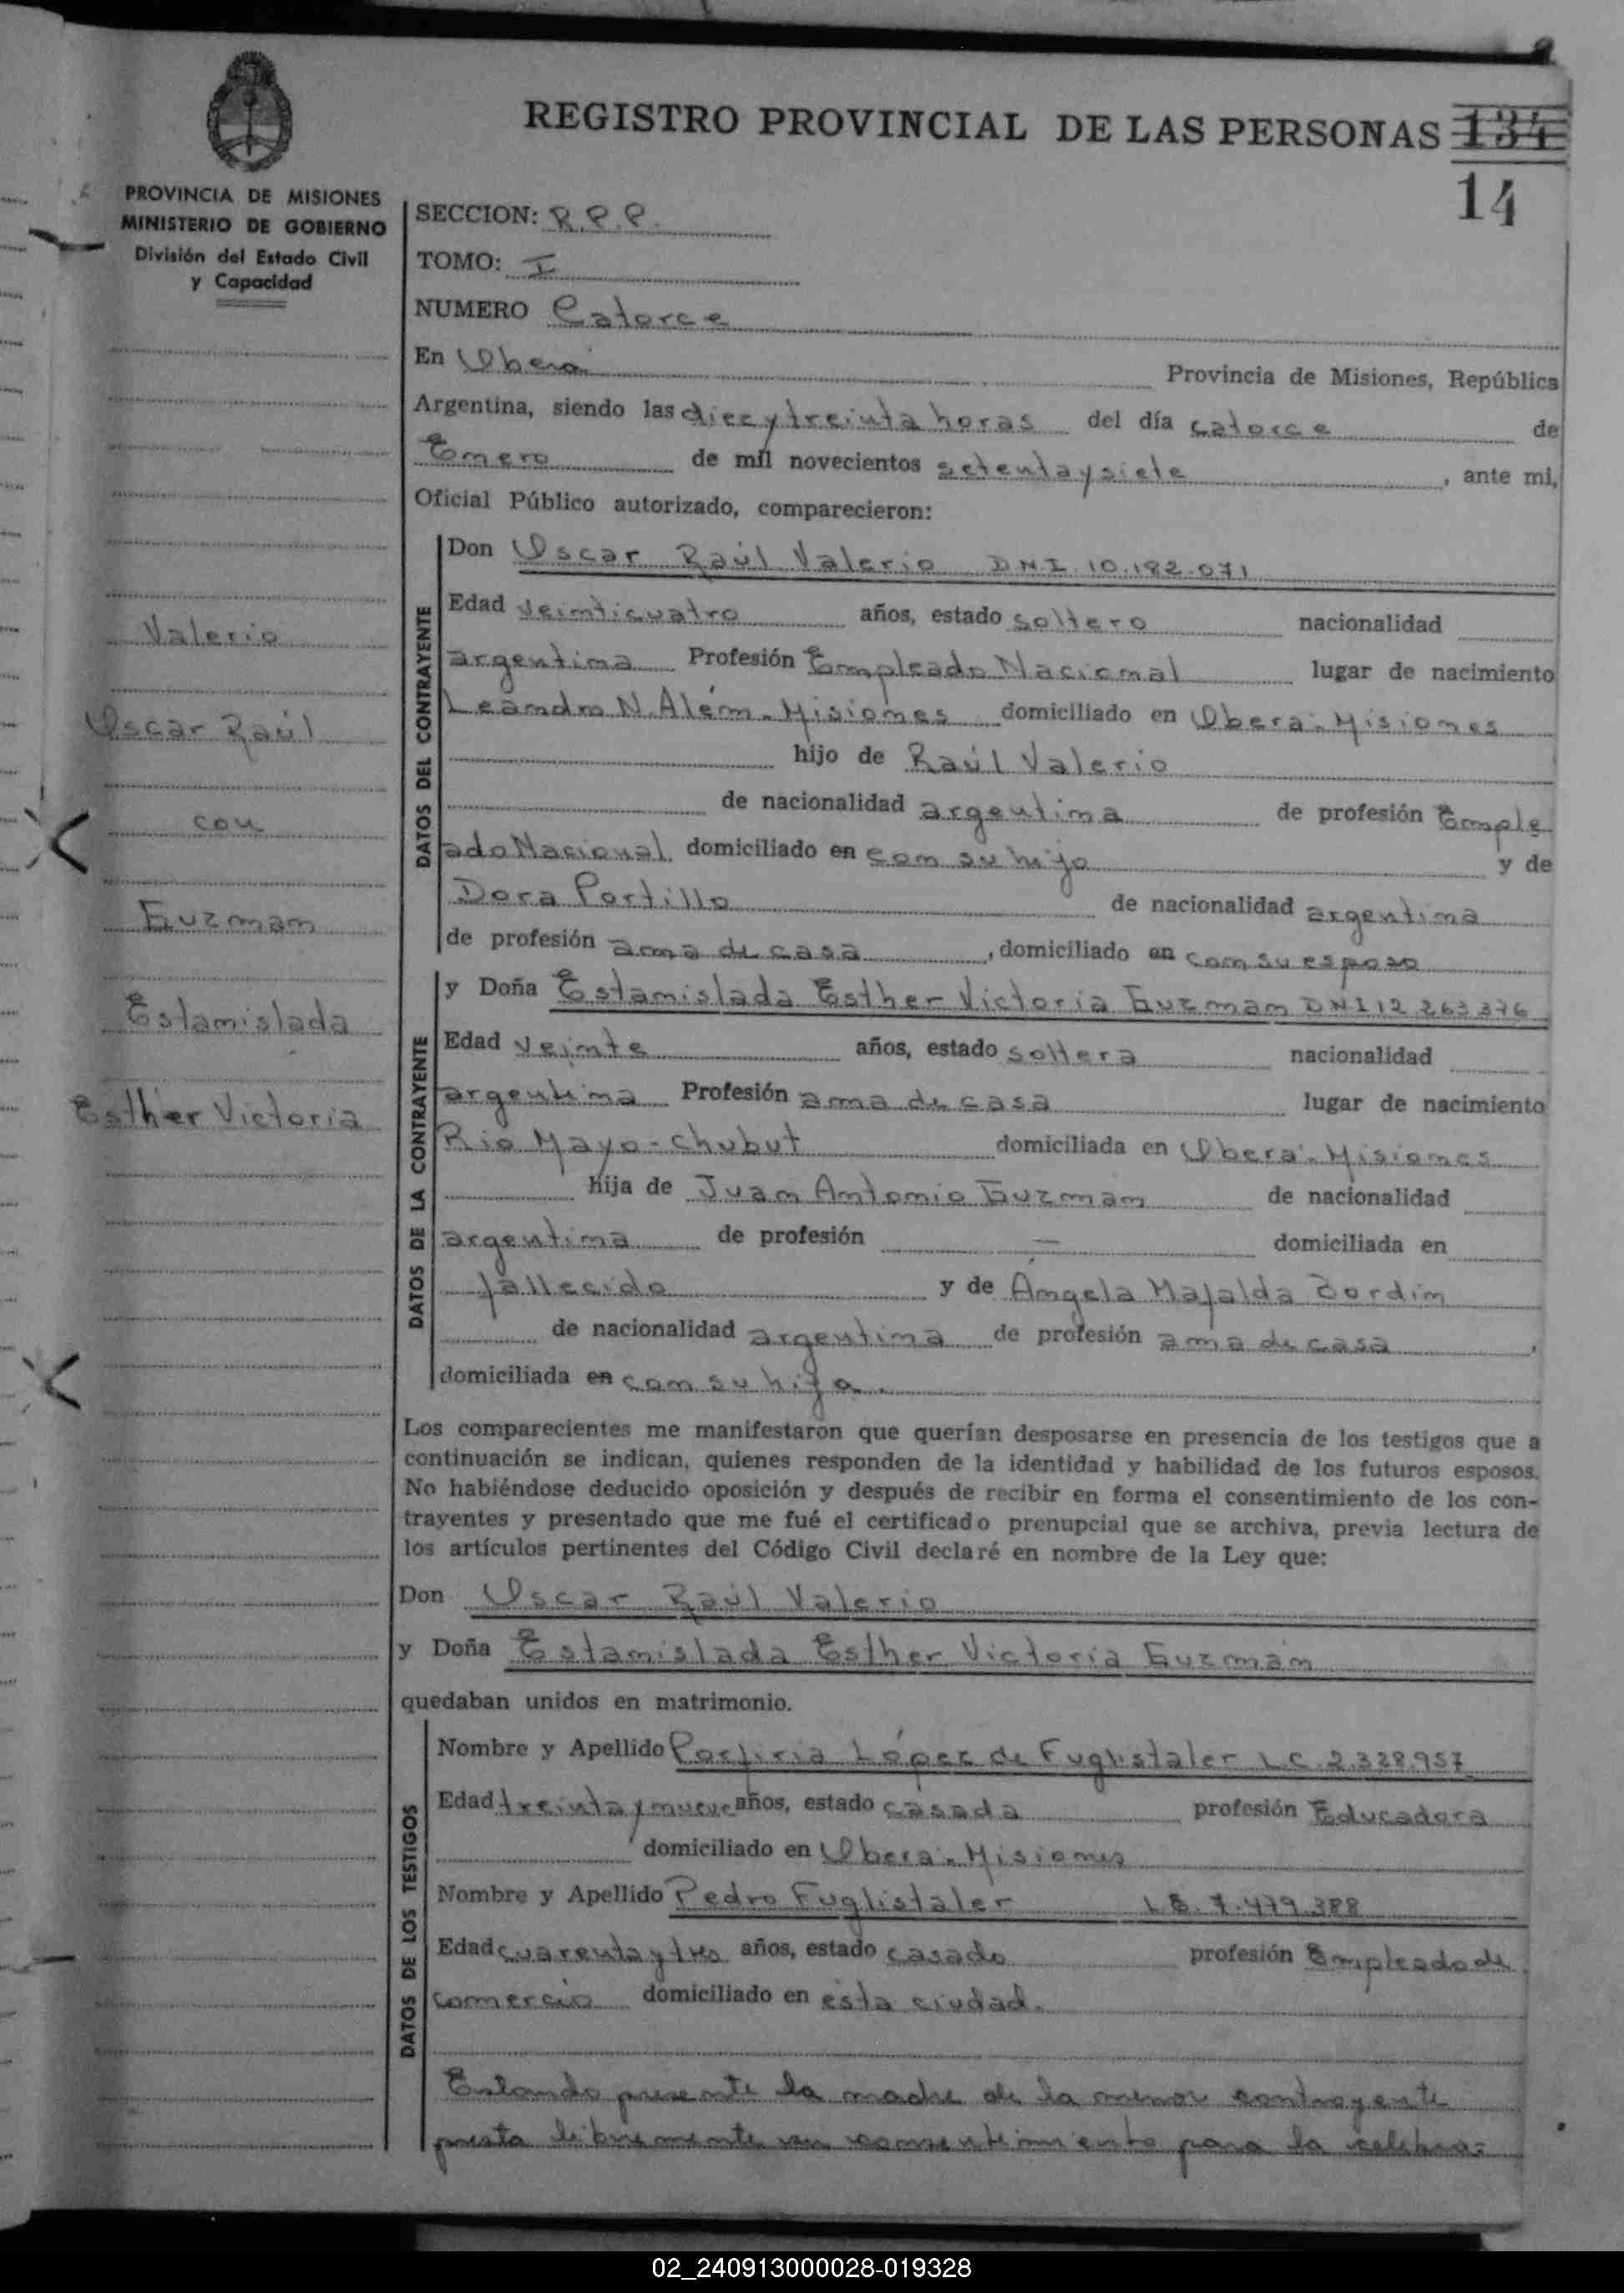 REGISTRO PROVINCIAL DE LAS PERSONAS 134
14
PROVINCIA DE MISIONES
MINISTERIO DE GOBIERNO
División del Estado Civil
y Capacidad
Valerio
Oscar Raúl
con
Guzman
Estanislada
Esther Victoria
SECCION: R.P.P.
TOMO: I
NUMERO Catorce
En Oberá Provincia de Misiones, República
Argentina, siendo las diez y treinta horas del día catorce de
Enero de mil novecientos setenta y siete, ante mi,
Oficial Público autorizado, comparecieron:
DATOS DEL CONTRAYENTE
Don Oscar Raúl Valerio DNI. 10.182.071
Edad veinticuatro años, estado soltero nacionalidad
argentina Profesión Empleado Nacional lugar de nacimiento
Leandro N. Além - Misiones domiciliado en Oberá - Misiones
hijo de Raúl Valerio
de nacionalidad argentina de profesión Emple
ado Nacional domiciliado en con su hijo y de
Dora Portillo de nacionalidad argentina
de profesión ama de casa, domiciliado en con su esposo
DATOS DE LA CONTRAYENTE
y Doña Estanislada Esther Victoria Guzman DNI 12.263.376
Edad veinte años, estado soltera nacionalidad
argentina Profesión ama de casa lugar de nacimiento
Rio Mayo - Chubut domiciliada en Oberá - Misiones
hija de Juan Antonio Guzman de nacionalidad
argentina de profesión — domiciliada en
fallecido y de Angela Mafalda Bordin
de nacionalidad argentina de profesión ama de casa,
domiciliada en con su hija.
Los comparecientes me manifestaron que querían desposarse en presencia de los testigos que a
continuación se indican, quienes responden de la identidad y habilidad de los futuros esposos.
No habiéndose deducido oposición y después de recibir en forma el consentimiento de los con-
trayentes y presentado que me fué el certificado prenupcial que se archiva, previa lectura de
los artículos pertinentes del Código Civil declaré en nombre de la Ley que:
Don Oscar Raúl Valerio
y Doña Estanislada Esther Victoria Guzman
quedaban unidos en matrimonio.
DATOS DE LOS TESTIGOS
Nombre y Apellido Porfiria López de Fuglistaler L.C. 2.328.957
Edad treinta y nueve años, estado casada profesión Educadora
domiciliado en Oberá - Misiones
Nombre y Apellido Pedro Fuglistaler L.E. 7.479.388
Edad cuarenta y tres años, estado casado profesión Empleado de
comercio domiciliado en esta ciudad.
Estando presente la madre de la menor contrayente
presta libremente su consentimiento para la celebra-
02_240913000028-019328